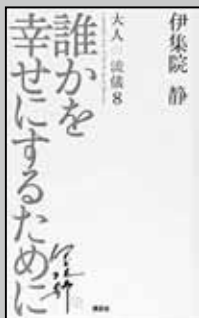 伊集院 静
大人の流儀8
誰かを
幸せにするために
講談社